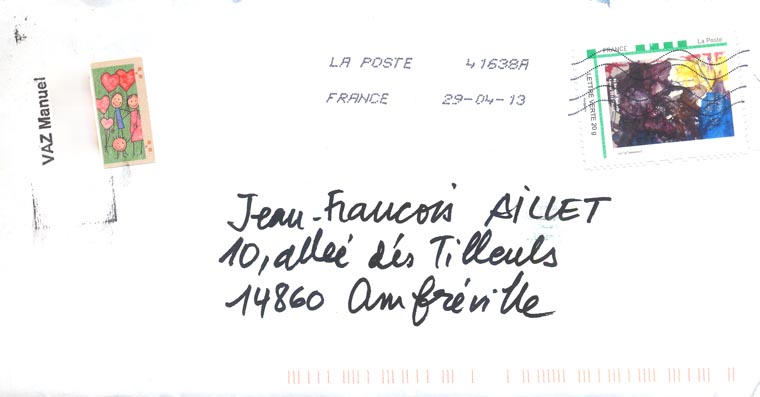 VAZ Manuel
LA POSTE 41638A
FRANCE 29-04-13
FRANCE La Poste
LETTRE VERTE 20g
Jean-François AILLET
10, alleé dés Tilleuls
14860 Amfréville